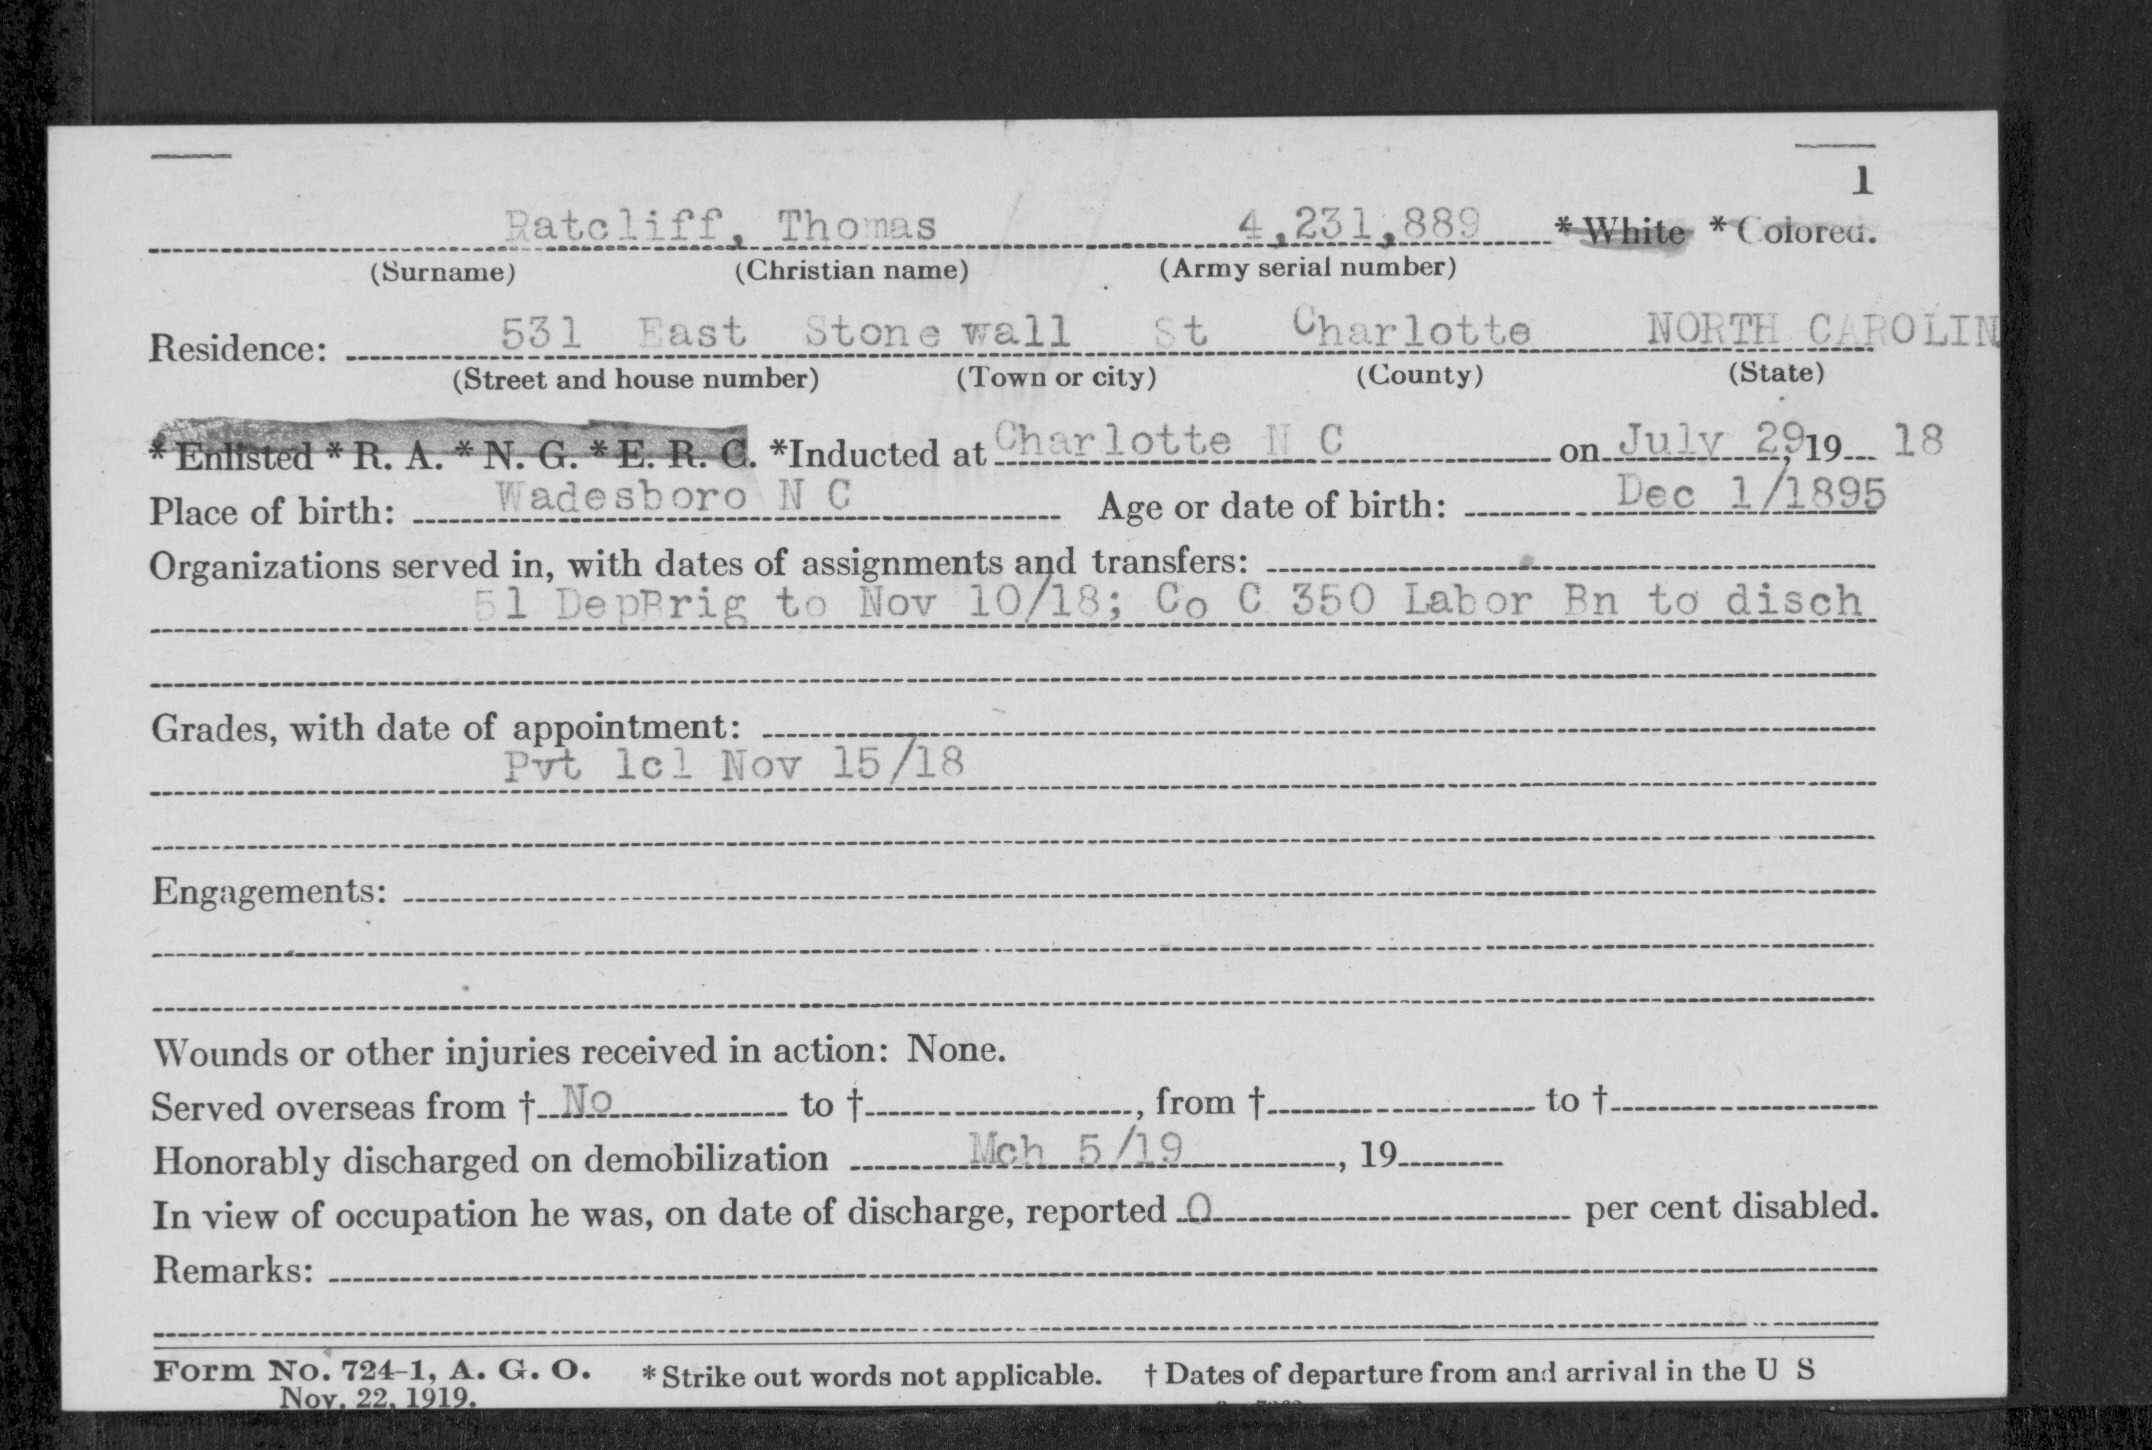 1
Ratcliff, Thomas 4,231,889 * White * Colored.
(Surname) (Christian name) (Army serial number)
Residence: 531 East Stonewall St Charlotte NORTH CAROLIN
(Street and house number) (Town or city) (County) (State)
* Enlisted * R. A. * N. G. * E. R. C. *Inducted at Charlotte N C on July 29, 19 18
Place of birth: Wadesboro N C Age or date of birth: Dec 1/1895
Organizations served in, with dates of assignments and transfers:
51 DepBrig to Nov 10/18; Co C 350 Labor Bn to disch
Grades, with date of appointment:
Pvt 1cl Nov 15/18
Engagements:
Wounds or other injuries received in action: None.
Served overseas from † No to † , from † to †
Honorably discharged on demobilization Mch 5/19 , 19
In view of occupation he was, on date of discharge, reported 0 per cent disabled.
Remarks:
Form No. 724-1, A. G. O. * Strike out words not applicable. † Dates of departure from and arrival in the U S
Nov. 22, 1919.